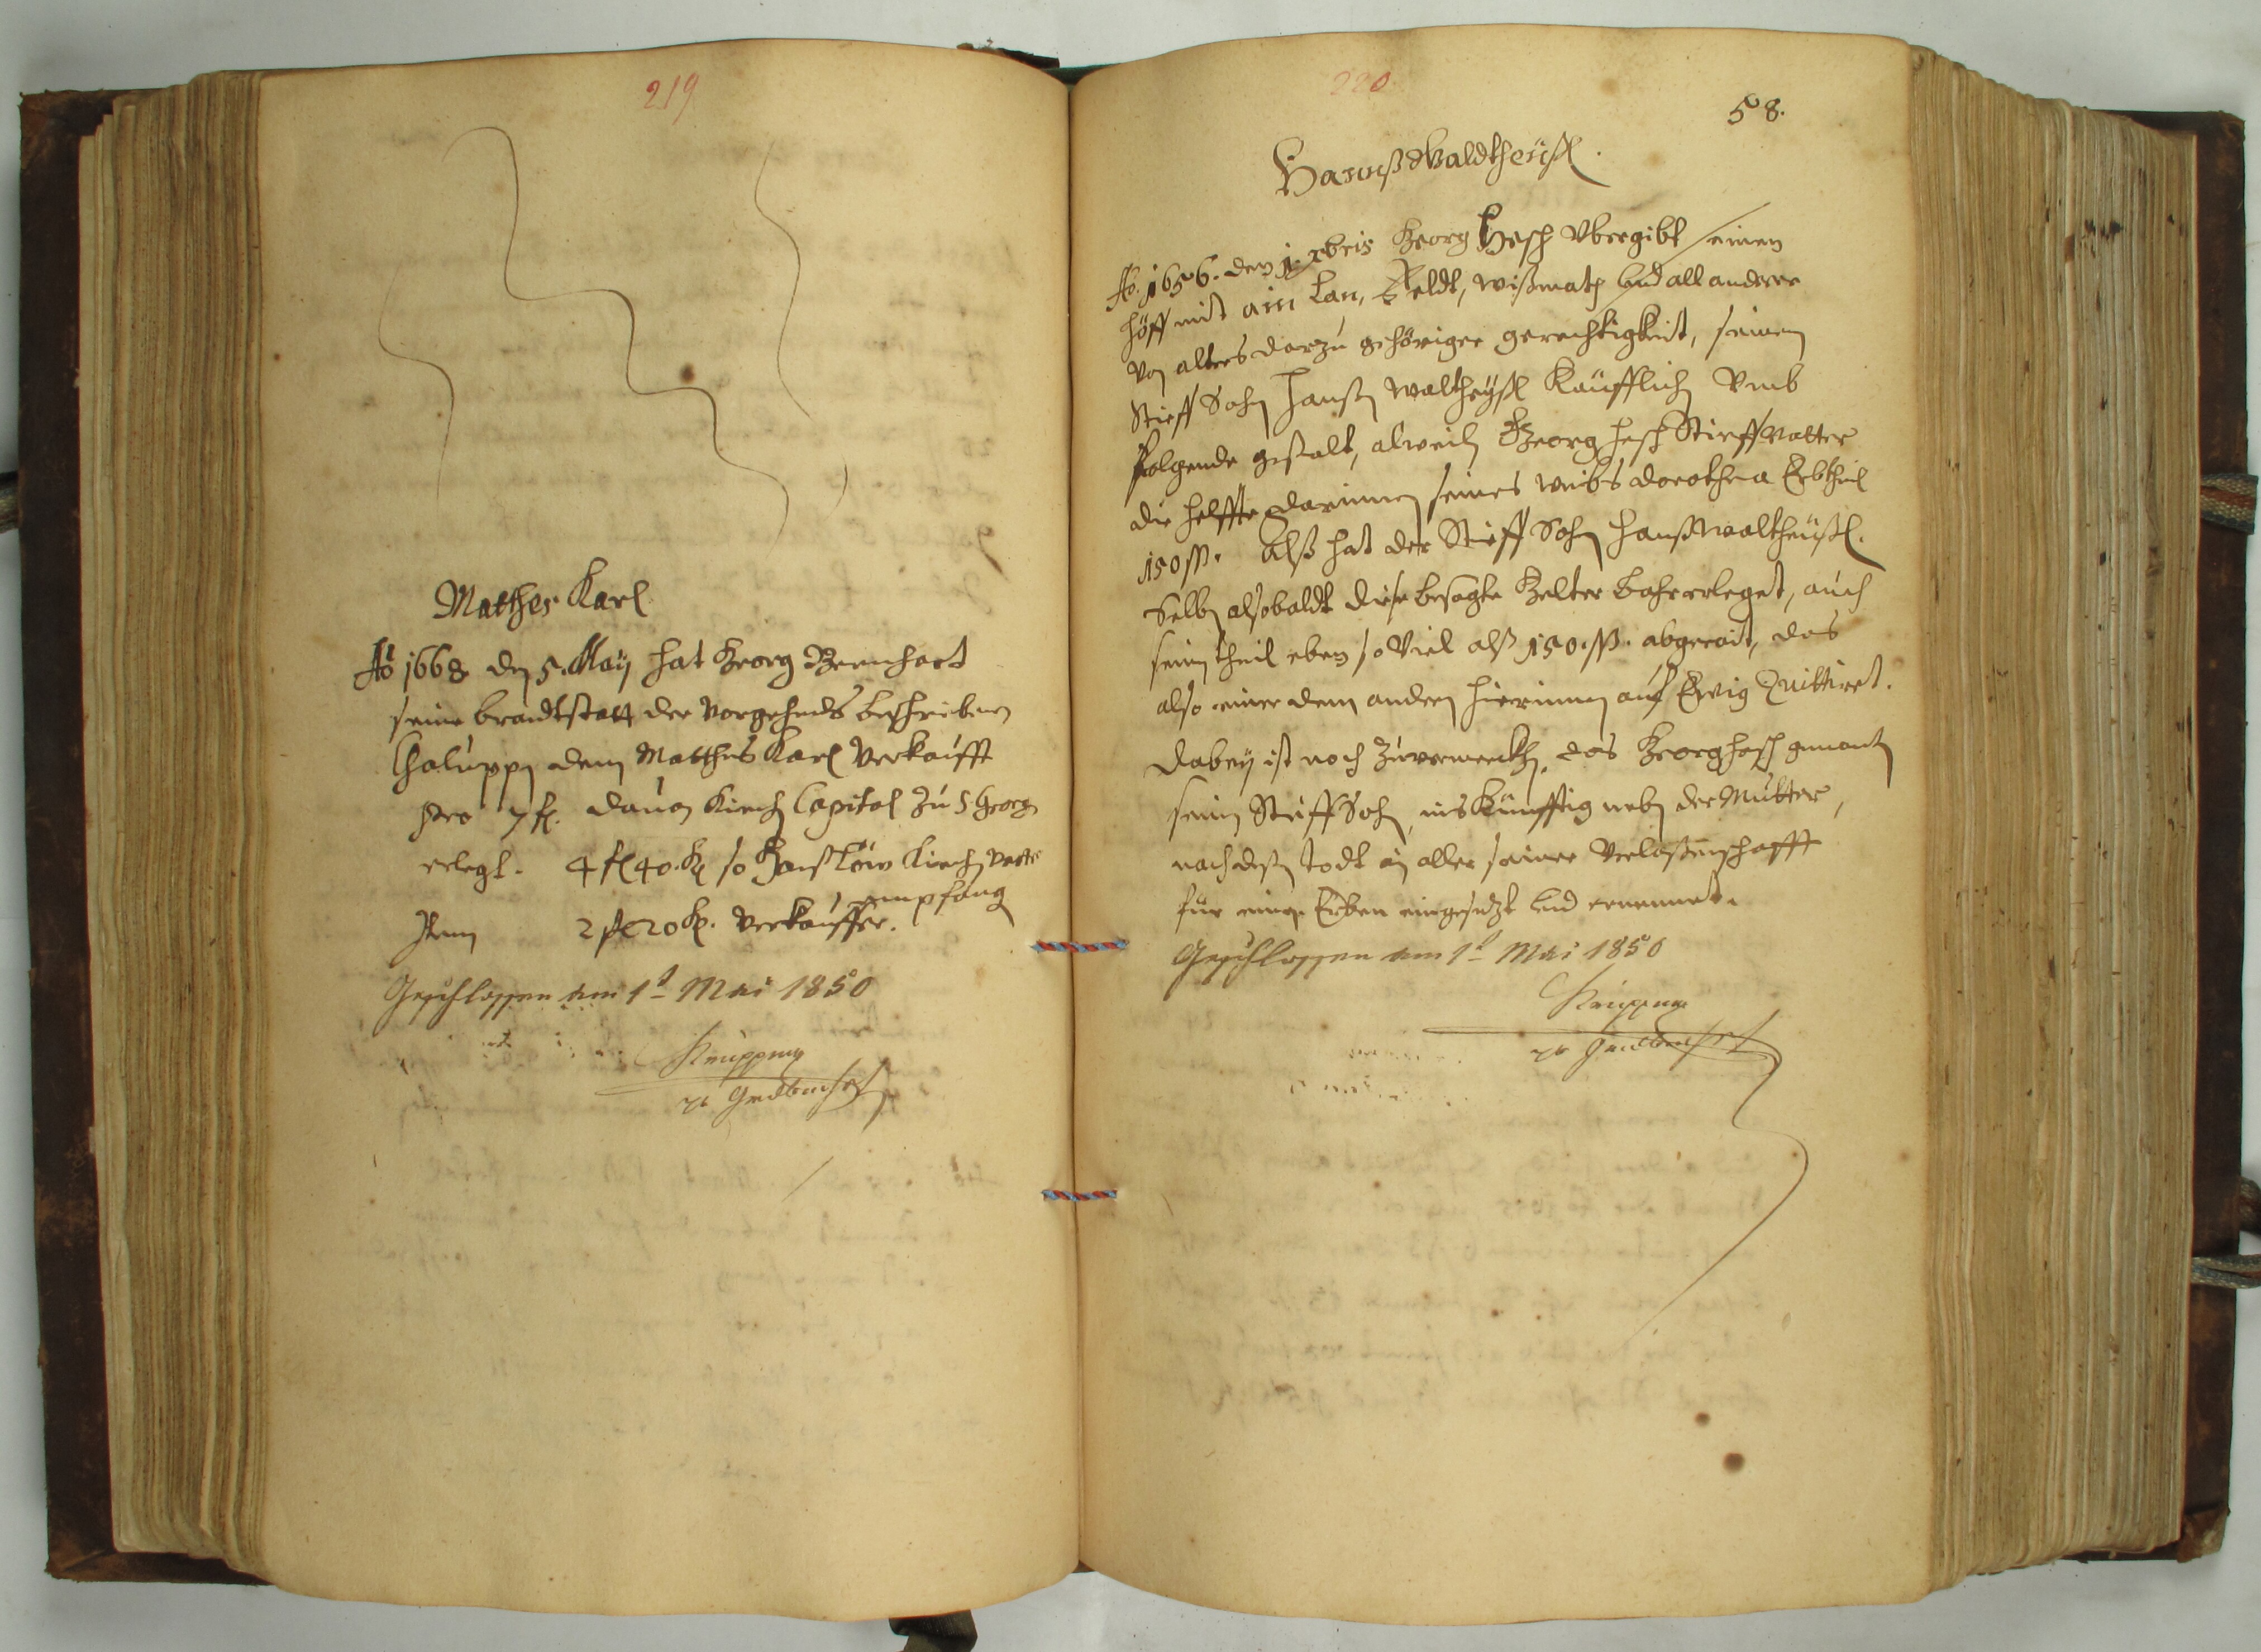 219
Mathes Karl
Ao 1668 den 5. Maÿ hat Georg Bernhart
seine brandtstatt der vorgehends beschriebenen
Chaluppn dem Matthes Karl verkaufft
pro 7 fl. dauon Kirchn Capital zu S Georgn
erlegt. 4 fl 40. kr so Hanß Löw Kirchn vatter
empfang
Item 2 fl 20 kr. verkauffer.
Geschlossen am 1t Mai 1850
220
58.
Hannß Waldtheüßl.
Ao. 1656. den 1. xbris Georg Hesch Vbergibt seinen
höff mit ain Lan, Feldt, wißmath und all anderer
von alters darzu gehöriger gerechtigkeit, seinen
Stieff Sohn Hanßn Waltheÿßl Kaüfflich Vmb
folgende gestalt, alweiln Georg Hesch Stieffvatter
die helffte darinnen seines weibs Dorothea Erbtheil
150 ß. Alß hat der Stieff Sohn Hanß Waltheüßl.
Selbn alsobaldt diese besagte Gelter bahr erleget, auch
sein theil eben so Viel alß 150. ß. abgerait, das
also einer dem andern hierinnen auf Ewig Quittiret.
Dabey ist noch zuvermerkhn, das Georg Hesch genantn
seinen Stieff Sohn, ins Künfftig nebn der Mutter,
nach deßn Todt in aller seiner Verlaßenschafft
für einen Erben eingesezt und ernennet.
Geschlossen am 1t Mai 1850